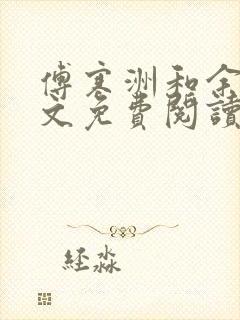 傅寒洲和余
文免費閱讀
经淼